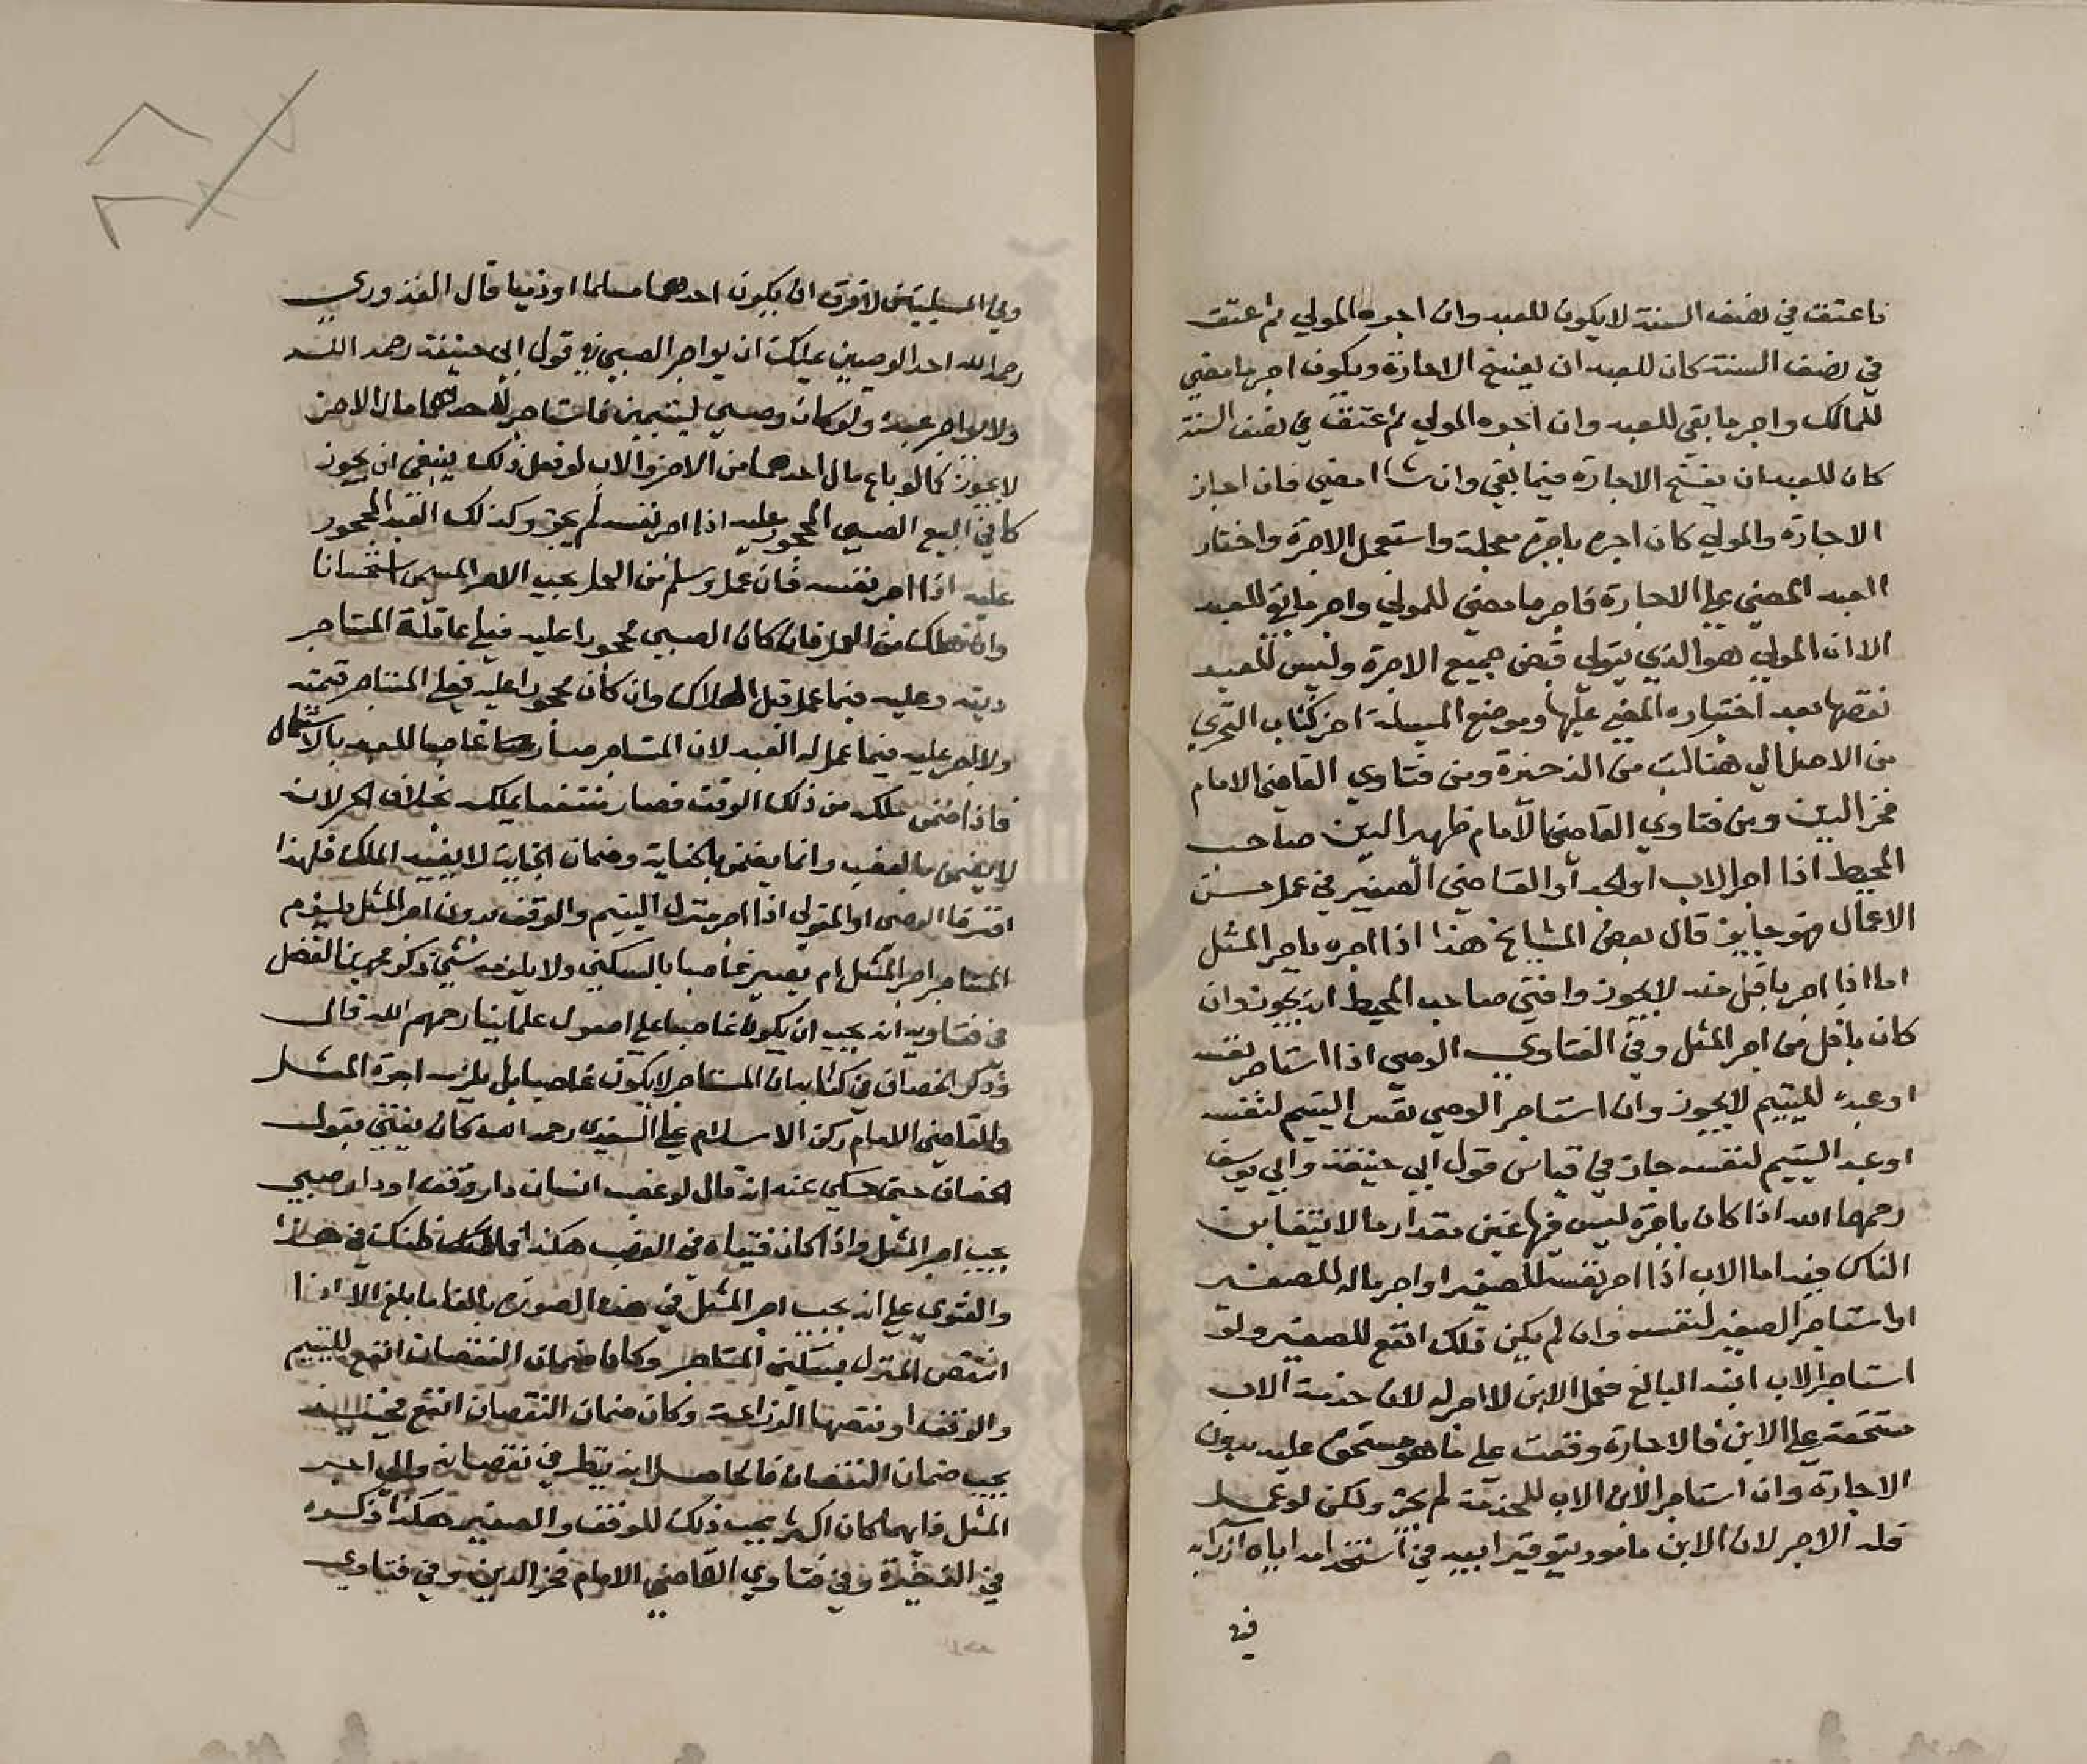 فاعتقت في نصف السنة لا يكون للعبد وان اجره المولي ثم اعتق
في نصف السنة كان للعبد ان يفسخ الاجارة ويكون اجر ما مضي
للمالك واجر ما بقي للعبد وان اجره المولي ثم اعتق في نصف السنة
كان للعبد ان يفسخ الاجارة فيما بقي وان شاا مضي فان اجاز
الاجارة والمولي كان اجره باجرة معجلة واستعجل الاجرة واختار
العبد المضي علي الاجارة فاجر ما مضي للمولي واجر ما بقي للعبد
الا ان المولي هو الذي يتولي قبض جميع الاجرة وليس للعبد
نقضها بعد اختياره المضي عليها وموضع المسيلة اخر كتاب التحري
من الاصل الي هنالك من الذخيرة ومن فتاوي القاضي الامام
فخر الدين ومن فتاوي القاضي الامام ظهير الدين صاحب
المحيط اذا اجر الاب او الجد او القاضي الصغير في عمل من
الاعمال فهو جايز قال بعض المشايخ هذا اذا اجره باجر المثل
اما اذا اجر باقل منه لا يجوز وافتي صاحب المحيط انه يجوز وان
كان باقل من اجر المثل وفي الفتاوي الوصي اذا استاجر نفسه
او عبده لليتيم لا يجوز وان استاجر الوصي نفس اليتيم لنفسه
او عبد اليتيم لنفسه جاز في قياس قول ابي حنيفة وابي يوسف
رحمهما الله اذا كان باجرة ليس فيها غبن مقدار ما لا يتغابن
الناس فيه اما الاب اذا اجر نفسه للصغير او اجر ماله للصغير
او استاجر الصغير لنفسه وان لم يكن ذلك انفع للصغير ولو
استاجر الاب ابنه البالغ فعمل الابن لا اجر له لان خدمة الاب
مستحقة علي الابن فالاجارة وقعت علي ما هو مستحق عليه بدون
الاجارة وان استاجر الابن الاب للخدمة لم يجز ولكن لو عمل
فله الاجر لان الابن مامور بتوقير ابيه في استخدامه اياه ازرابه
فيه
وفي المسيلتين لا فرق ان يكون احدهما مسلما او ذميا قال القدوري
رحمه الله احد الوصيين يملك ان يواجر الصبي في قول ابي حنيفة رحمه الله
ولا يواجر عبده ولو كان وصي ليتيمين فاستاجر لاحدهما مال الاخر
لا يجوز كما لو باع مال احدهما من الاخر والاب لو فعل ذلك ينبغي ان يجوز
كما في البيع الصبي المحجور عليه اذا اجر نفسه لم يجز وكذلك العبد المحجور
عليه اذا اجر نفسه فان عمل وسلم من العمل يجب الاجر المسمي استحسانا
وان هلك من العمل فان كان الصبي محجورا عليه فعلي عاقلة المستاجر
ديته وعليه فيما عمل قبل الهلاك وان كان محجورا عليه فعلي المستاجر قيمته
ولا اجر عليه فيما عمل له العبد لان المستاجر صار غاصبا للعبد بالاستعمال
فاذا ضمن ملكه من ذلك الوقت فصار منتفعا بملكه بخلاف الحر لانه
لا يضمن بالغصب وانما يضمن بالجناية وضمان الجناية لا يفيد الملك فلهذا
افترقا الوصي او المتولي اذا اجر منزل اليتيم والوقف بدون اجر المثل يلزم
المستاجر اجر المثل ام يصير غاصبا بالسكني ولا يلزمه شي ذكر محمد بن الفضل
في فتاويه انه يجب ان يكون غاصبا علي اصول علماينا رحمهم الله قال
وذكر الخصاف في كتابه ان المستاجر لا يكون غاصبا بل يلزمه اجرة المثل
والقاضي الامام ركن الاسلام علي السغدي رحمه الله كان يفتي بقول
الخصاف حتي حكي عنه انه قال لو غصب انسان دار وقف او دار صبي
يجب اجر المثل واذا كان فتياه في الغصب هكذا فما ظنك في هذا
والفتوي علي انه يجب اجر المثل في هذه الصورة بالغا ما بلغ الا اذا
انتقص المنزل بسكني المستاجر وكان ضمان النقصان انفع لليتيم
والوقف او نقصها الزراعة وكان ضمان النقصان انفع فحينيذ
يجب ضمان النقصان فالحاصل انه ينظر في نقصانه والي اجر
المثل فايهما كان اكثر يجب ذلك للوقف والصغير هكذا ذكره
في الذخيرة وفي فتاوي القاضي الامام فخر الدين وفي فتاوي